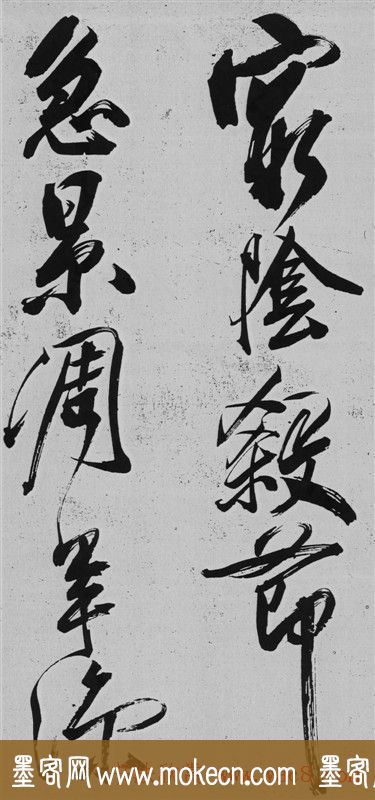 窮陰殺節
急景凋年
墨客网 www.mokecn.com 墨客网